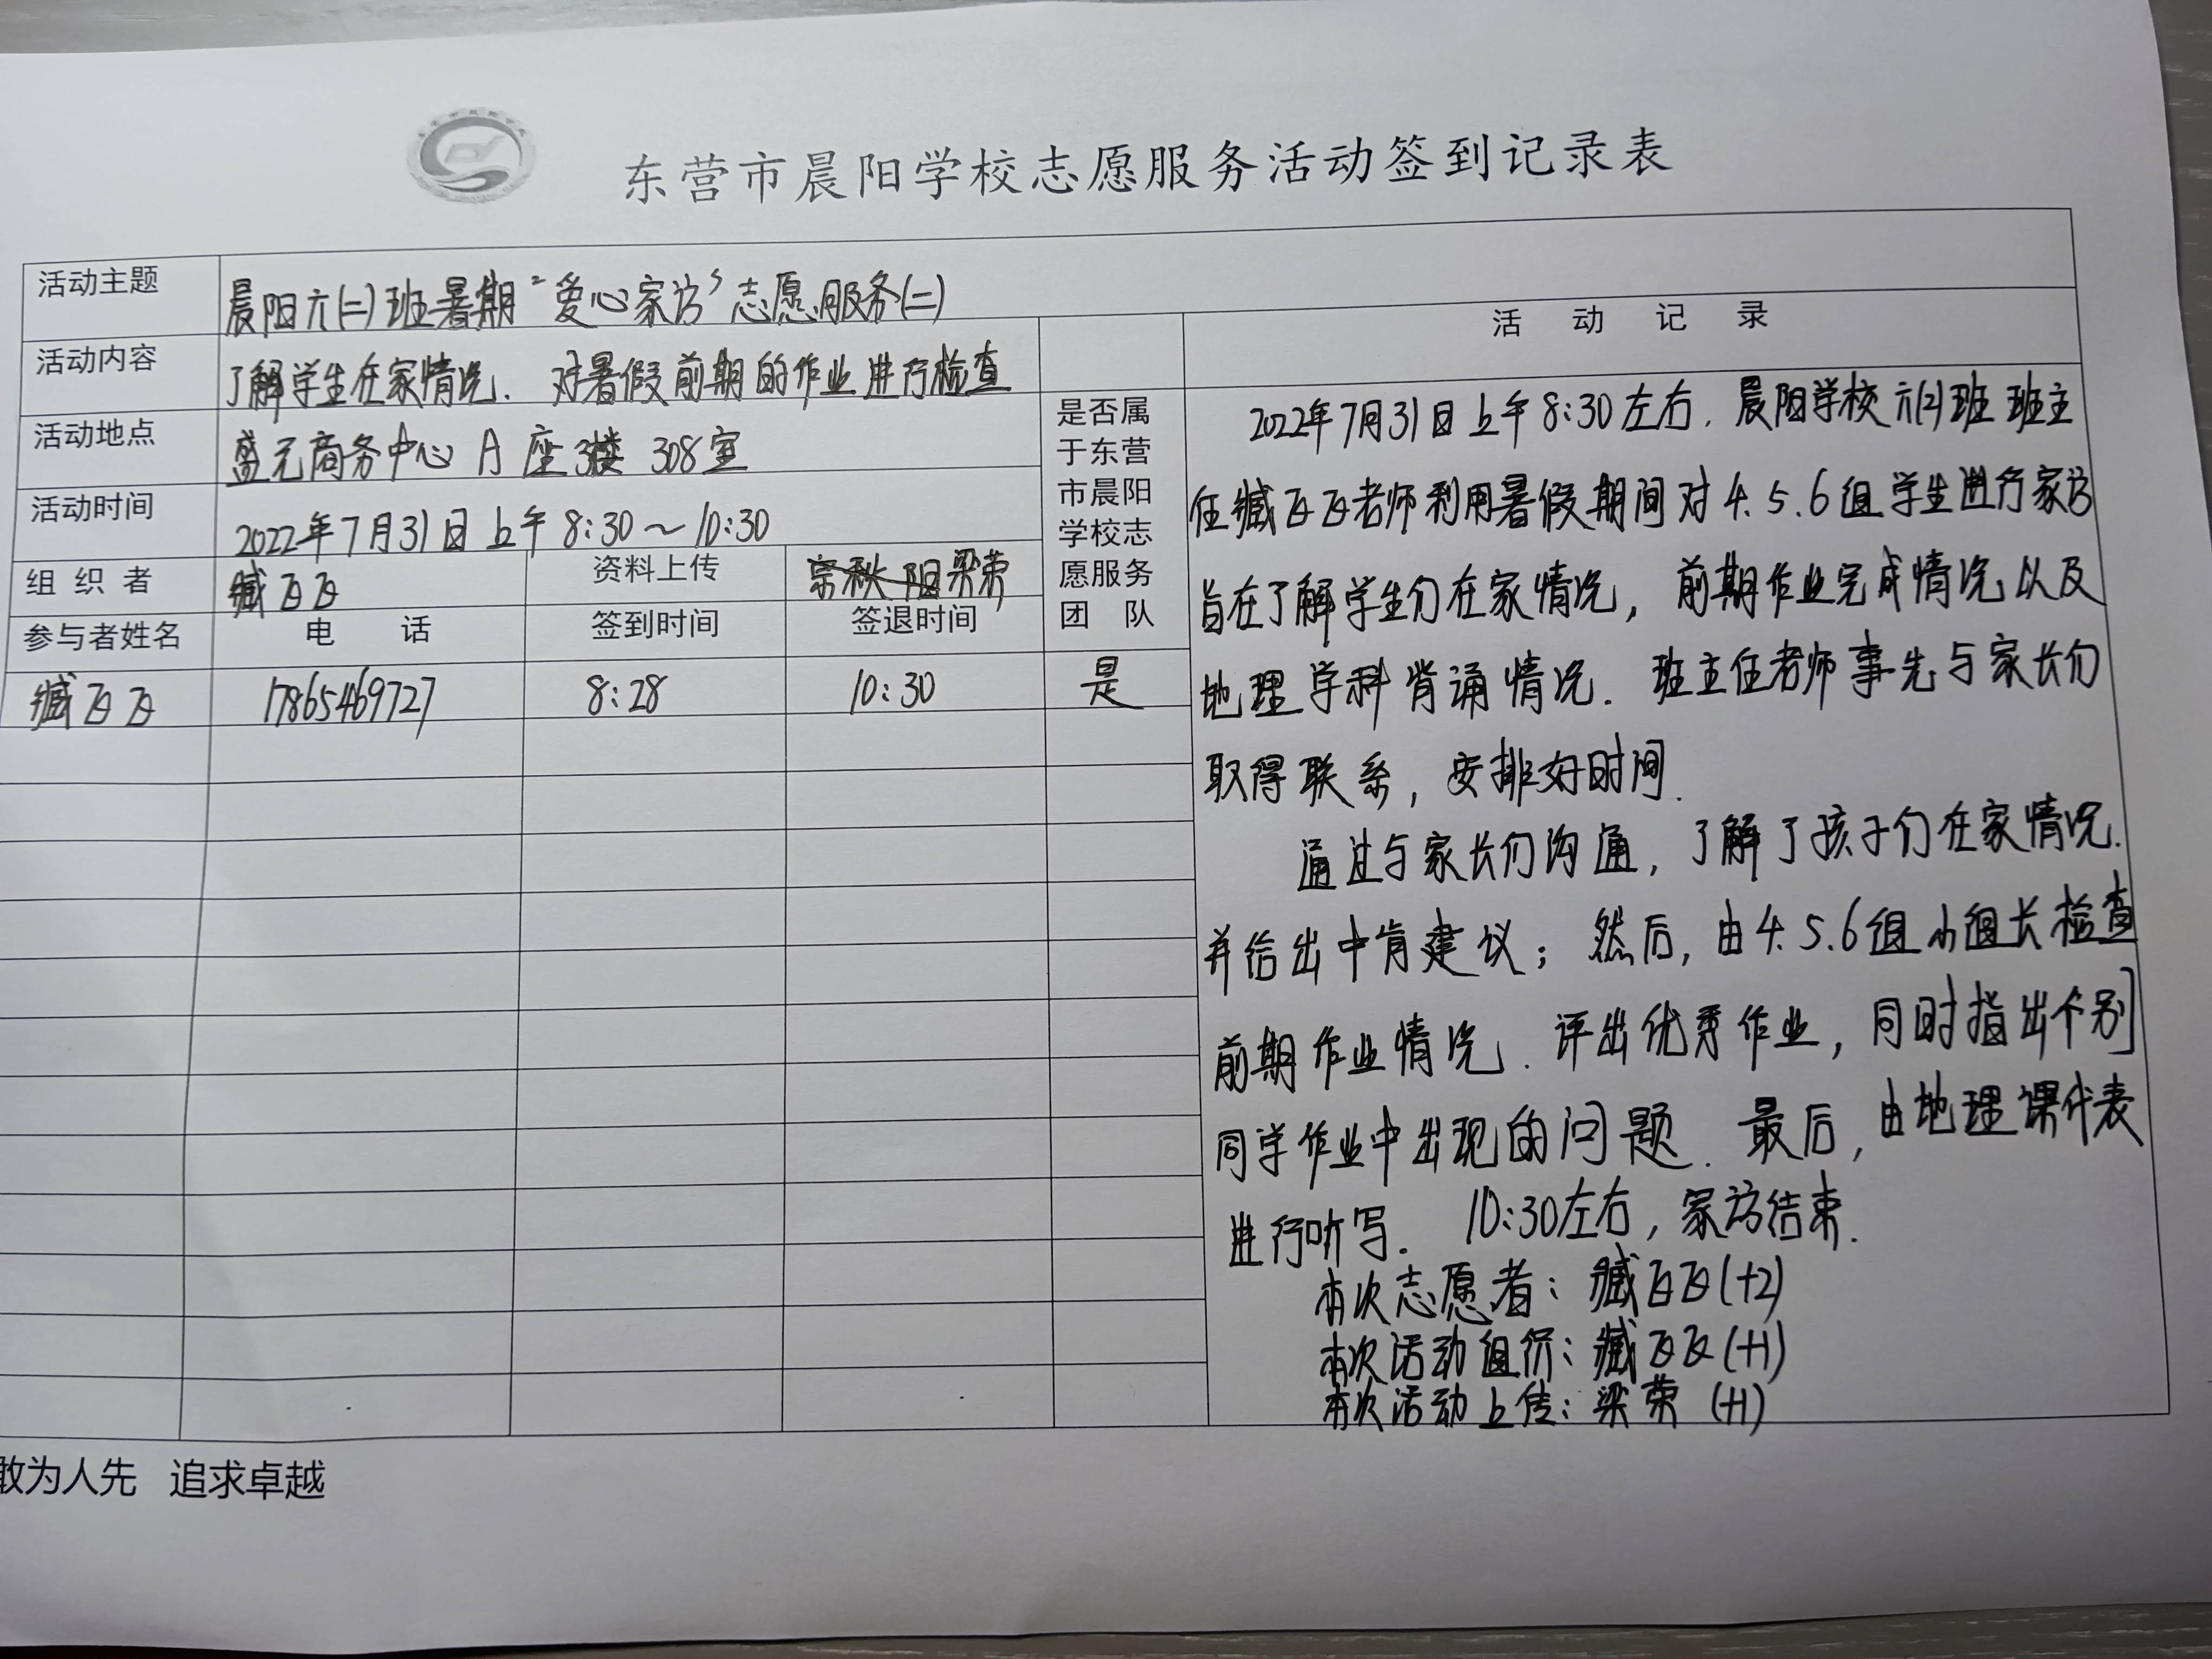 东营市晨阳学校志愿服务活动签到记录表
活动主题 晨阳六(二)班暑期“爱心家访”志愿服务(二)
活动内容 了解学生在家情况. 对暑假前期的作业进行检查
活动地点 盛元商务中心 A座3楼 308室
活动时间 2022年7月31日上午 8:30~10:30
组织者 臧 资料上传 梁荣
参与者姓名 电话 签到时间 签退时间 是否属于东营市晨阳学校志愿服务团队
臧 17865469727 8:28 10:30 是
活动记录
2022年7月31日上午8:30左右, 晨阳学校六(2)班班主
任臧 老师利用暑假期间对4.5.6组学生进行家访
旨在了解学生们在家情况, 前期作业完成情况以及
地理学科背诵情况. 班主任老师事先与家长们
取得联系, 安排好时间.
通过与家长们沟通, 了解了孩子们在家情况.
并给出中肯建议; 然后, 由4.5.6组小组长检查
前期作业情况. 评出优秀作业, 同时指出个别
同学作业中出现的问题. 最后, 由地理课代表
进行听写. 10:30左右, 家访结束.
本次志愿者: 臧 (+2)
本次活动组织: 臧 (+1)
本次活动上传: 梁荣 (+1)
敢为人先 追求卓越